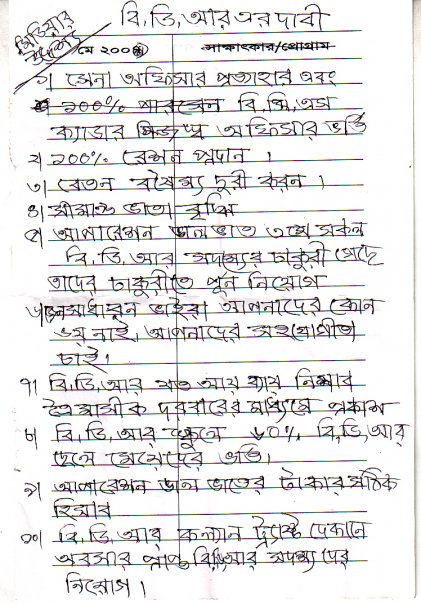 মিডিয়ার
বি,ডি,আর এর দাবী
মে ২০০৯ সাক্ষাৎকার/প্রোগ্রাম
১। সেনা অফিসার প্রত্যাহার এবং
১০০% পারসেন বি,সি,এস
ক্যাডার নিজস্ব অফিসার ভর্তি
২। ১০০% রেশন প্রদান ।
৩। বেতন বৈষম্য দূরী করন ।
৪। সীমান্ত ভাতা বৃদ্ধি
৫। অপারেশন ডাল ভাত এসে সকল
বি,ডি,আর সদস্যের চাকুরী গেছে
তাদের চাকুরীতে পুন নিয়োগ
৬। জনসাধারন ভাইরা আপনাদের কোন
ভয় নাই, আপনাদের সহযোগীতা
চাই।
৭। বি,ডি,আর সত আয় ব্যয় হিসাব
ত্রৈমাসীক দরবারের মাধ্যমে প্রকাশ
৮। বি,ডি,আর স্কুলে ৬০% বি,ডি,আর
ছেলে মেয়েদের ভর্তি।
৯। অপারেশন ডাল ভাতের টাকার সঠিক
হিসাব
১০। বি,ডি,আর কল্যান ট্রাষ্টে দোকানে
অবসার প্রাপ্ত বিডিআর সদস্যদের
নিয়োগ ।